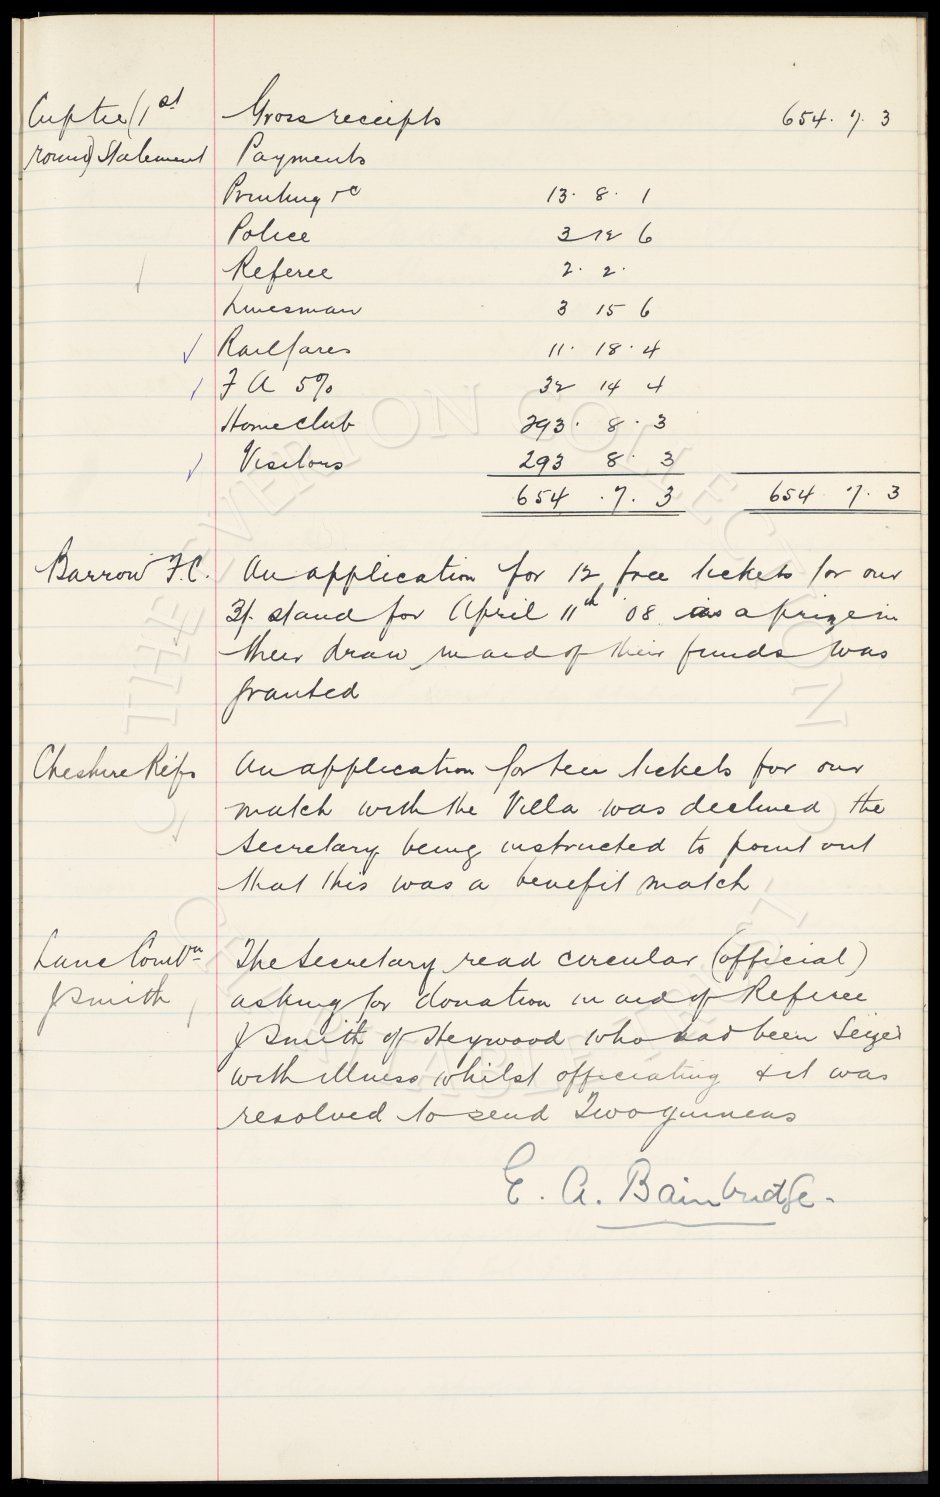 Cup tie (1st Gross receipts 654. 7. 3
round) Statement Payments
Printing &c 13. 8. 1
Police 3 12 6
Referee 2. 2.
Linesman 3 15 6
Railfares 11. 18. 4
F A 5% 32 14 4
Home club 293. 8. 3
Visitors 293 8. 3
654 . 7. 3 654 7. 3
Barrow F.C. An application for 12 free tickets for our
3/- stand for April 11th '08 as a prize in
their draw in aid of their funds was
granted
Cheshire Refs An application for ten tickets for our
match with the Villa was declined the
Secretary being instructed to point out
that this was a benefit match
Lanc Combn The Secretary read circular (official)
J Smith asking for donation in aid of Referee
J Smith of Heywood who had been seized
with illness whilst officiating & it was
resolved to send Two guineas
E. A. Bainbridge.
THE EVERTON COLLECTION
CHARITABLE TRUST